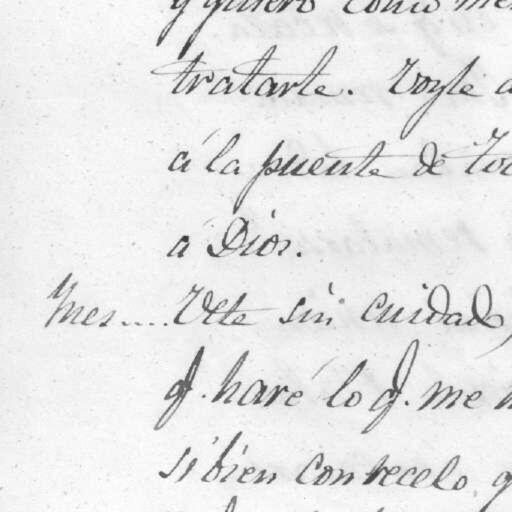 q quiero como
tratarte. Voyle
á la puente de
á Dios.
Mes.... Vete sin cuidado,
q. haré lo q. me
si bien con recelo